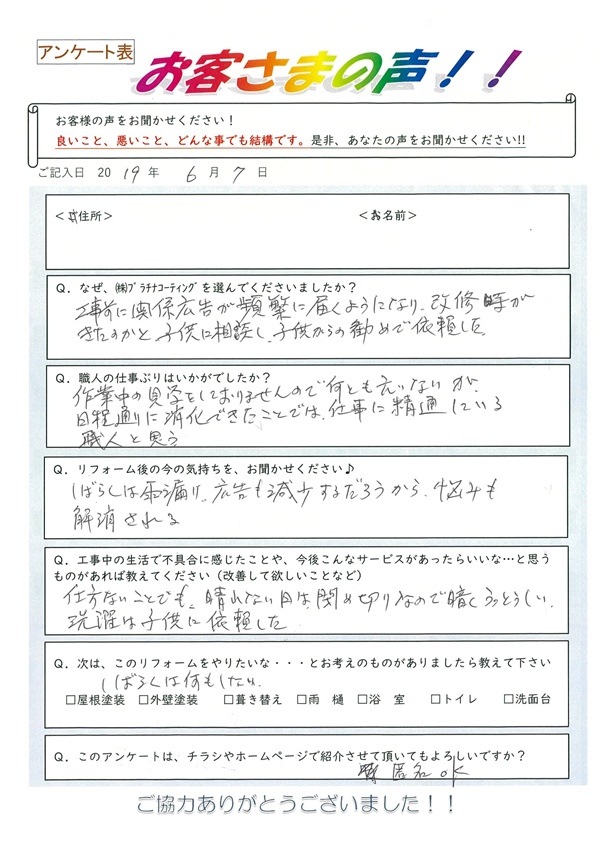 アンケート表
お客さまの声！！
お客様の声をお聞かせください！
良いこと、悪いこと、どんな事でも結構です。是非、あなたの声をお聞かせください!!
ご記入日 2019年 6月7日
＜ご住所＞ ＜お名前＞
Q．なぜ、㈱プラチナコーティングを選んでくださいましたか？
工事前に関係広告が頻繁に届くようになり、改修時が
きたのかと、子供に相談し、子供からの勧めで依頼した
Q．職人の仕事ぶりはいかがでしたか？
作業中の見学をしておりませんので何とも云いないが、
日程通りに消化できたことでは、仕事に精通している
職人と思う
Q．リフォーム後の今の気持ちを、お聞かせください♪
しばらくは雨漏り、広告も減少するだろうから、悩みも
解消される
Q．工事中の生活で不具合に感じたことや、今後こんなサービスがあったらいいな…と思う
ものがあれば教えてください（改善して欲しいことなど）
仕方ないことでも、晴れない日は閉め切りなので暗くうっとうしい。
洗濯は子供に依頼した
Q．次は、このリフォームをやりたいな・・・とお考えのものがありましたら教えて下さい
しばらくは何もしない
□屋根塗装 □外壁塗装 □葺き替え □雨 樋 □浴 室 □トイレ □洗面台
Q．このアンケートは、チラシやホームページで紹介させて頂いてもよろしいですか？
匿名OK
ご協力ありがとうございました！！